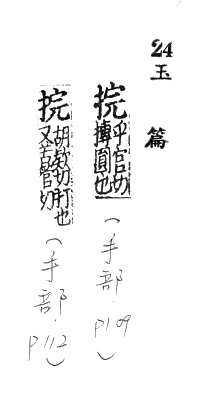 24
玉篇
捖
乎官切
摶圓也
(手部. P109)
捖
胡切也
又古管切
(手部. P112)